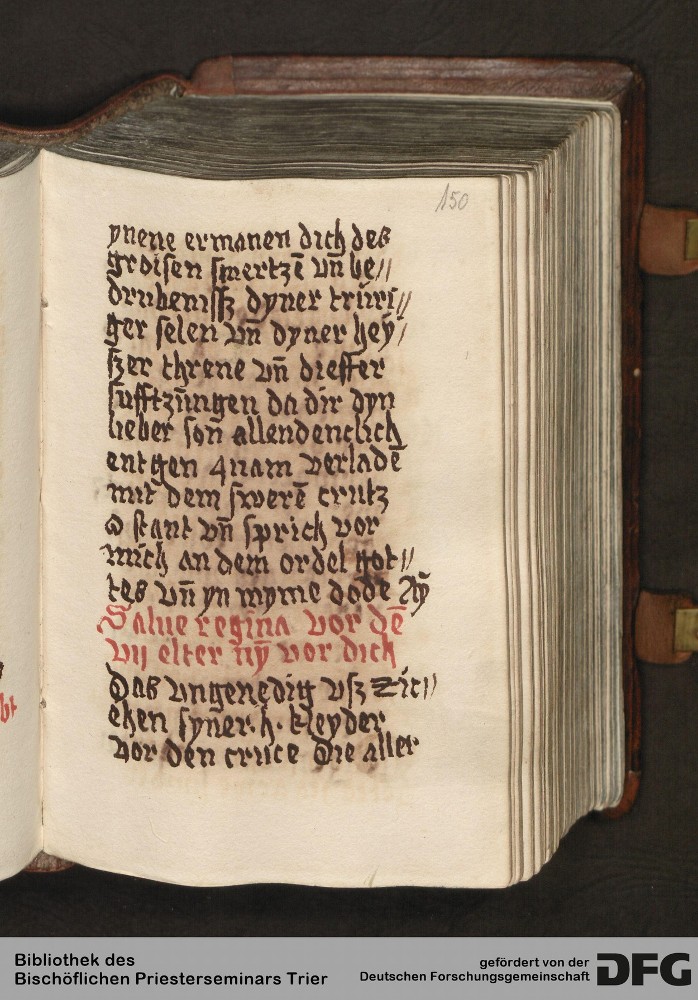 150
ynene ermanen dich des
groisen smertzē vñ be//
drubenisß dyner truri//
ger selen vñ dyner hey/
szer threne vñ dieffer
sufftzūngen da dir dyn
lieber son̄ allendenclich
entgen quam verladē
mit dem swerē crutz
O stant vñ sprich vor
mich an dem ordel got//
tes vñ yn myme dode Aȳ
Salue regina vor dē
vij elter nȳ vor dich
Das vngenedig vsz zic//
ehen syner .h. kleyder
vor den cruce Die aller
Bibliothek des
Bischöflichen Priesterseminars Trier
gefördert von der
Deutschen Forschungsgemeinschaft
DFG